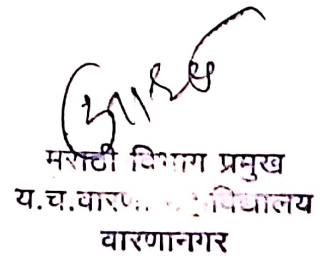 मराठी विभाग प्रमुख
य.च.वारणा विद्यालय
वारणानगर